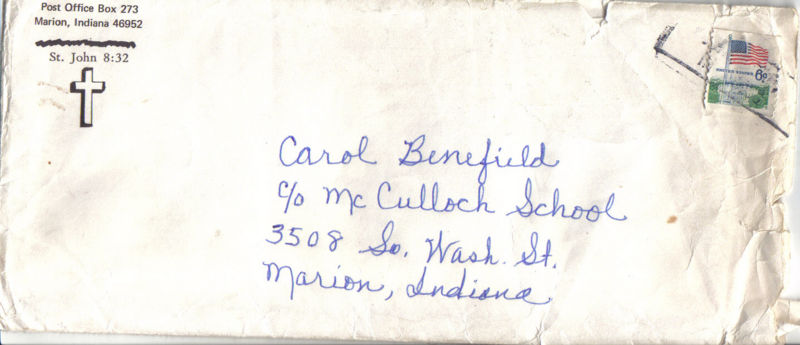 Post Office Box 273
Marion, Indiana 46952
St. John 8:32
UNITED STATES
6¢
Carol Benefield
c/o McCulloch School
3508 So. Wash. St.
Marion, Indiana